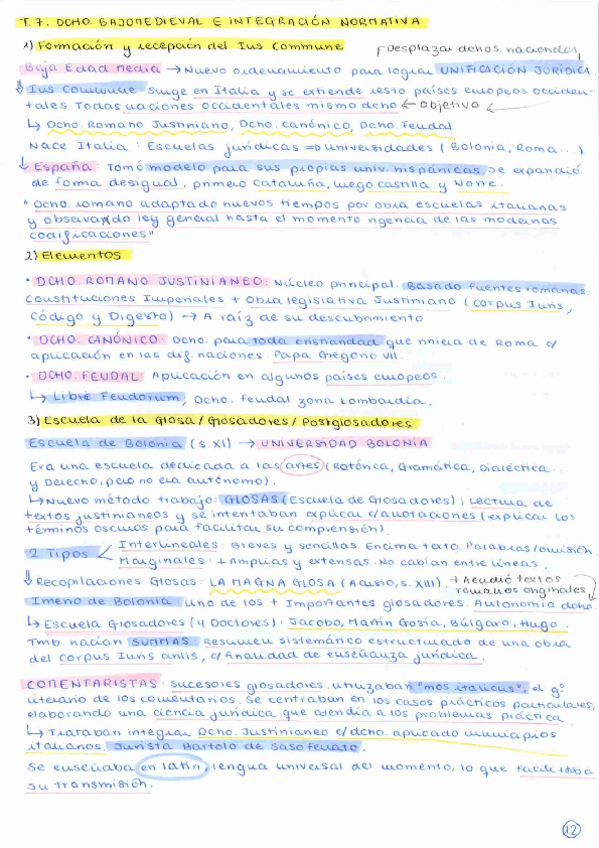 T. 7. DCHO. BAJOMEDIEVAL E INTEGRACIÓN NORMATIVA
1) Formación y recepción del Ius Commune
desplazar dchos. nacionales
Baja Edad Media → Nuevo ordenamiento para lograr UNIFICACIÓN JURÍDICA.
Ius Commune surge en Italia y se extiende resto países europeos occiden-
tales. Todas naciones occidentales mismo dcho ← Objetivo
↳ Dcho. Romano Justiniano, Dcho. canónico, Dcho. Feudal
Nace Italia: Escuelas jurídicas ⇒ Universidades (Bolonia, Roma...)
↓ España: Tomó modelo para sus propias univ. hispánicas. Se expandió
de forma desigual, primero Cataluña, luego castilla y Norte.
"Dcho. romano adaptado nuevos tiempos por obra escuelas italianas
y observando ley general hasta el momento vigencia de las modernas
codificaciones"
2) Elementos
• DCHO. ROMANO JUSTINIANEO: Núcleo principal. Basado fuentes romanas:
Constituciones Imperiales + Obra legislativa Justiniano (Corpus Iuris,
Código y Digesto) → A raíz de su descubrimiento
• DCHO. CANÓNICO: Dcho. para toda cristiandad que viniera de Roma c/
aplicación en las dif. naciones. Papa Gregorio VII.
• DCHO. FEUDAL: Aplicación en algunos países europeos.
↳ Libri Feudorum, Dcho. feudal zona Lombardía.
3) Escuela de la Glosa / Glosadores / Postglosadores
Escuela de Bolonia (s. XI) → UNIVERSIDAD BOLONIA
Era una escuela dedicada a las artes (Retórica, Gramática, Dialéctica...
y Derecho, pero no era autónomo).
↳ Nuevo método trabajo: GLOSAS (Escuela de Glosadores); Lectura de
textos justinianeos y se intentaban explicar c/anotaciones (explicar los
términos oscuros para facilitar su comprensión).
2 Tipos
Interlineales: Breves y sencillas. Encima texto. Palabras/omisión.
Marginales: + Amplias y extensas. No cabían entre líneas.
↓ Recopilaciones Glosas: LA MAGNA GLOSA (Acursio, s. XIII).
+ Acudió textos
romanos originales
Irnerio de Bolonia: uno de los + importantes glosadores. Autonomía dcho.
↳ Escuela Glosadores (4 Doctores): Jacobo, Martín Gosia, Búlgaro, Hugo.
Tmb hacían SUMMAS: Resumen sistemático estructurado de una obra
del Corpus Iuris civilis, c/finalidad de enseñanza jurídica.
COMENTARISTAS: sucesores glosadores. utilizaban "mos italicus", el gº
literario de los comentarios. Se centraban en los casos prácticos particulares,
elaborando una ciencia jurídica que atendía a los problemas práctica.
↳ Trataban integrar Dcho. Justinianeo c/dcho. aplicado municipios
italianos. Jurista Bartolo de Sasoferrato.
Se enseñaba en latín, lengua universal del momento, lo que facilitaba
su transmisión.
12